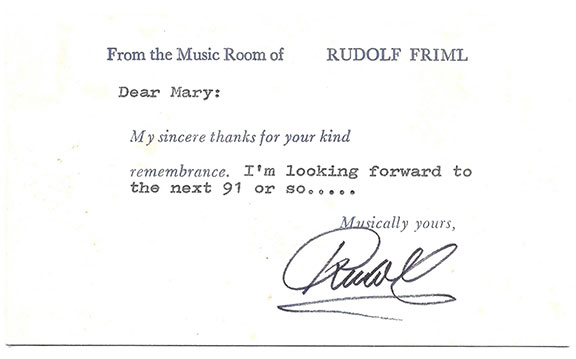 From the Music Room of RUDOLF FRIML
Dear Mary:
My sincere thanks for your kind
remembrance. I'm looking forward to
the next 91 or so.....
Musically yours,
Rudolf